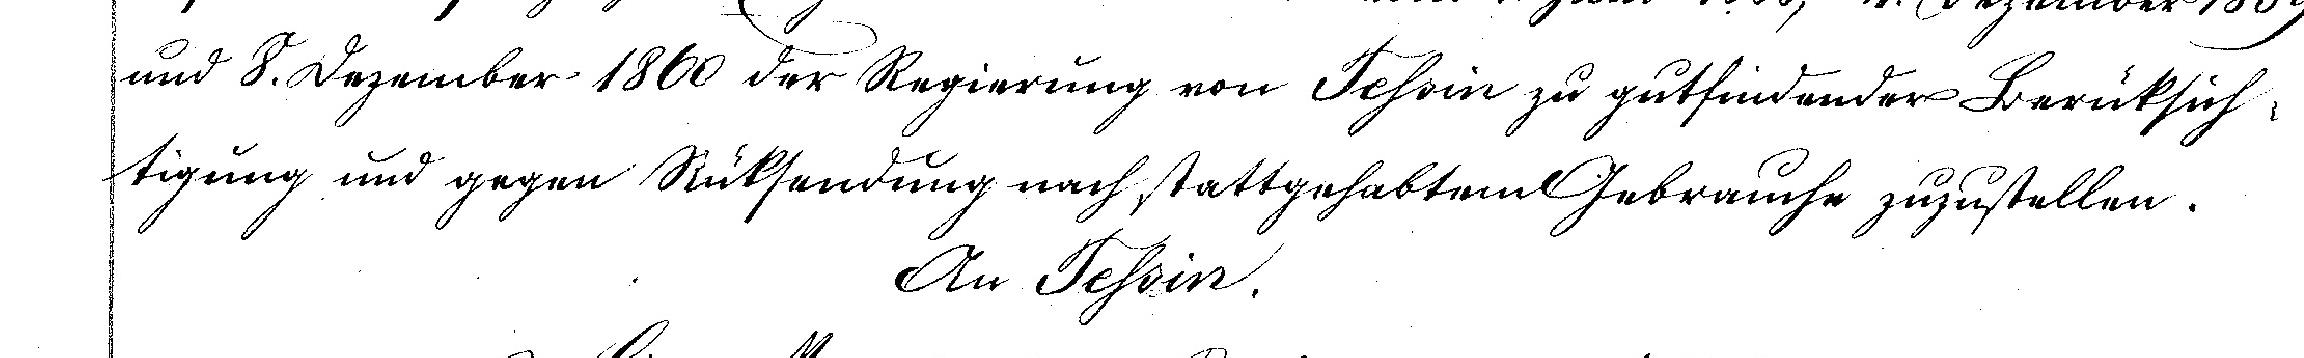 Dezember 1859
und 8. Dezember 1860 der Regierung von Tessin zu gutfindender Berüksich-
tigung und gegen Rüksendung nach stattgehabtem Gebrauche zuzustellen.
An Tessin.